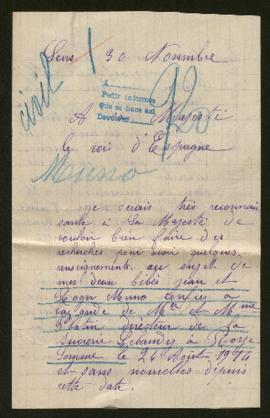 Sens 30 Novembre
civil
Pedir informes
que se hace así
A Majesté
le roi d'Espagne
Muno
Je serais très reconnais
sante à Sa Majesté de
vouloir bien faire des
recherches pour avoir quelques
renseignements au sujet de
mes deux bébés Jean et
Roger Muno confiés à
la garde de Mr et Mme
directeur de la
Sucrerie Lebaudy à Roye
Somme le 26 Août 1914
et sans nouvelles depuis
cette date.